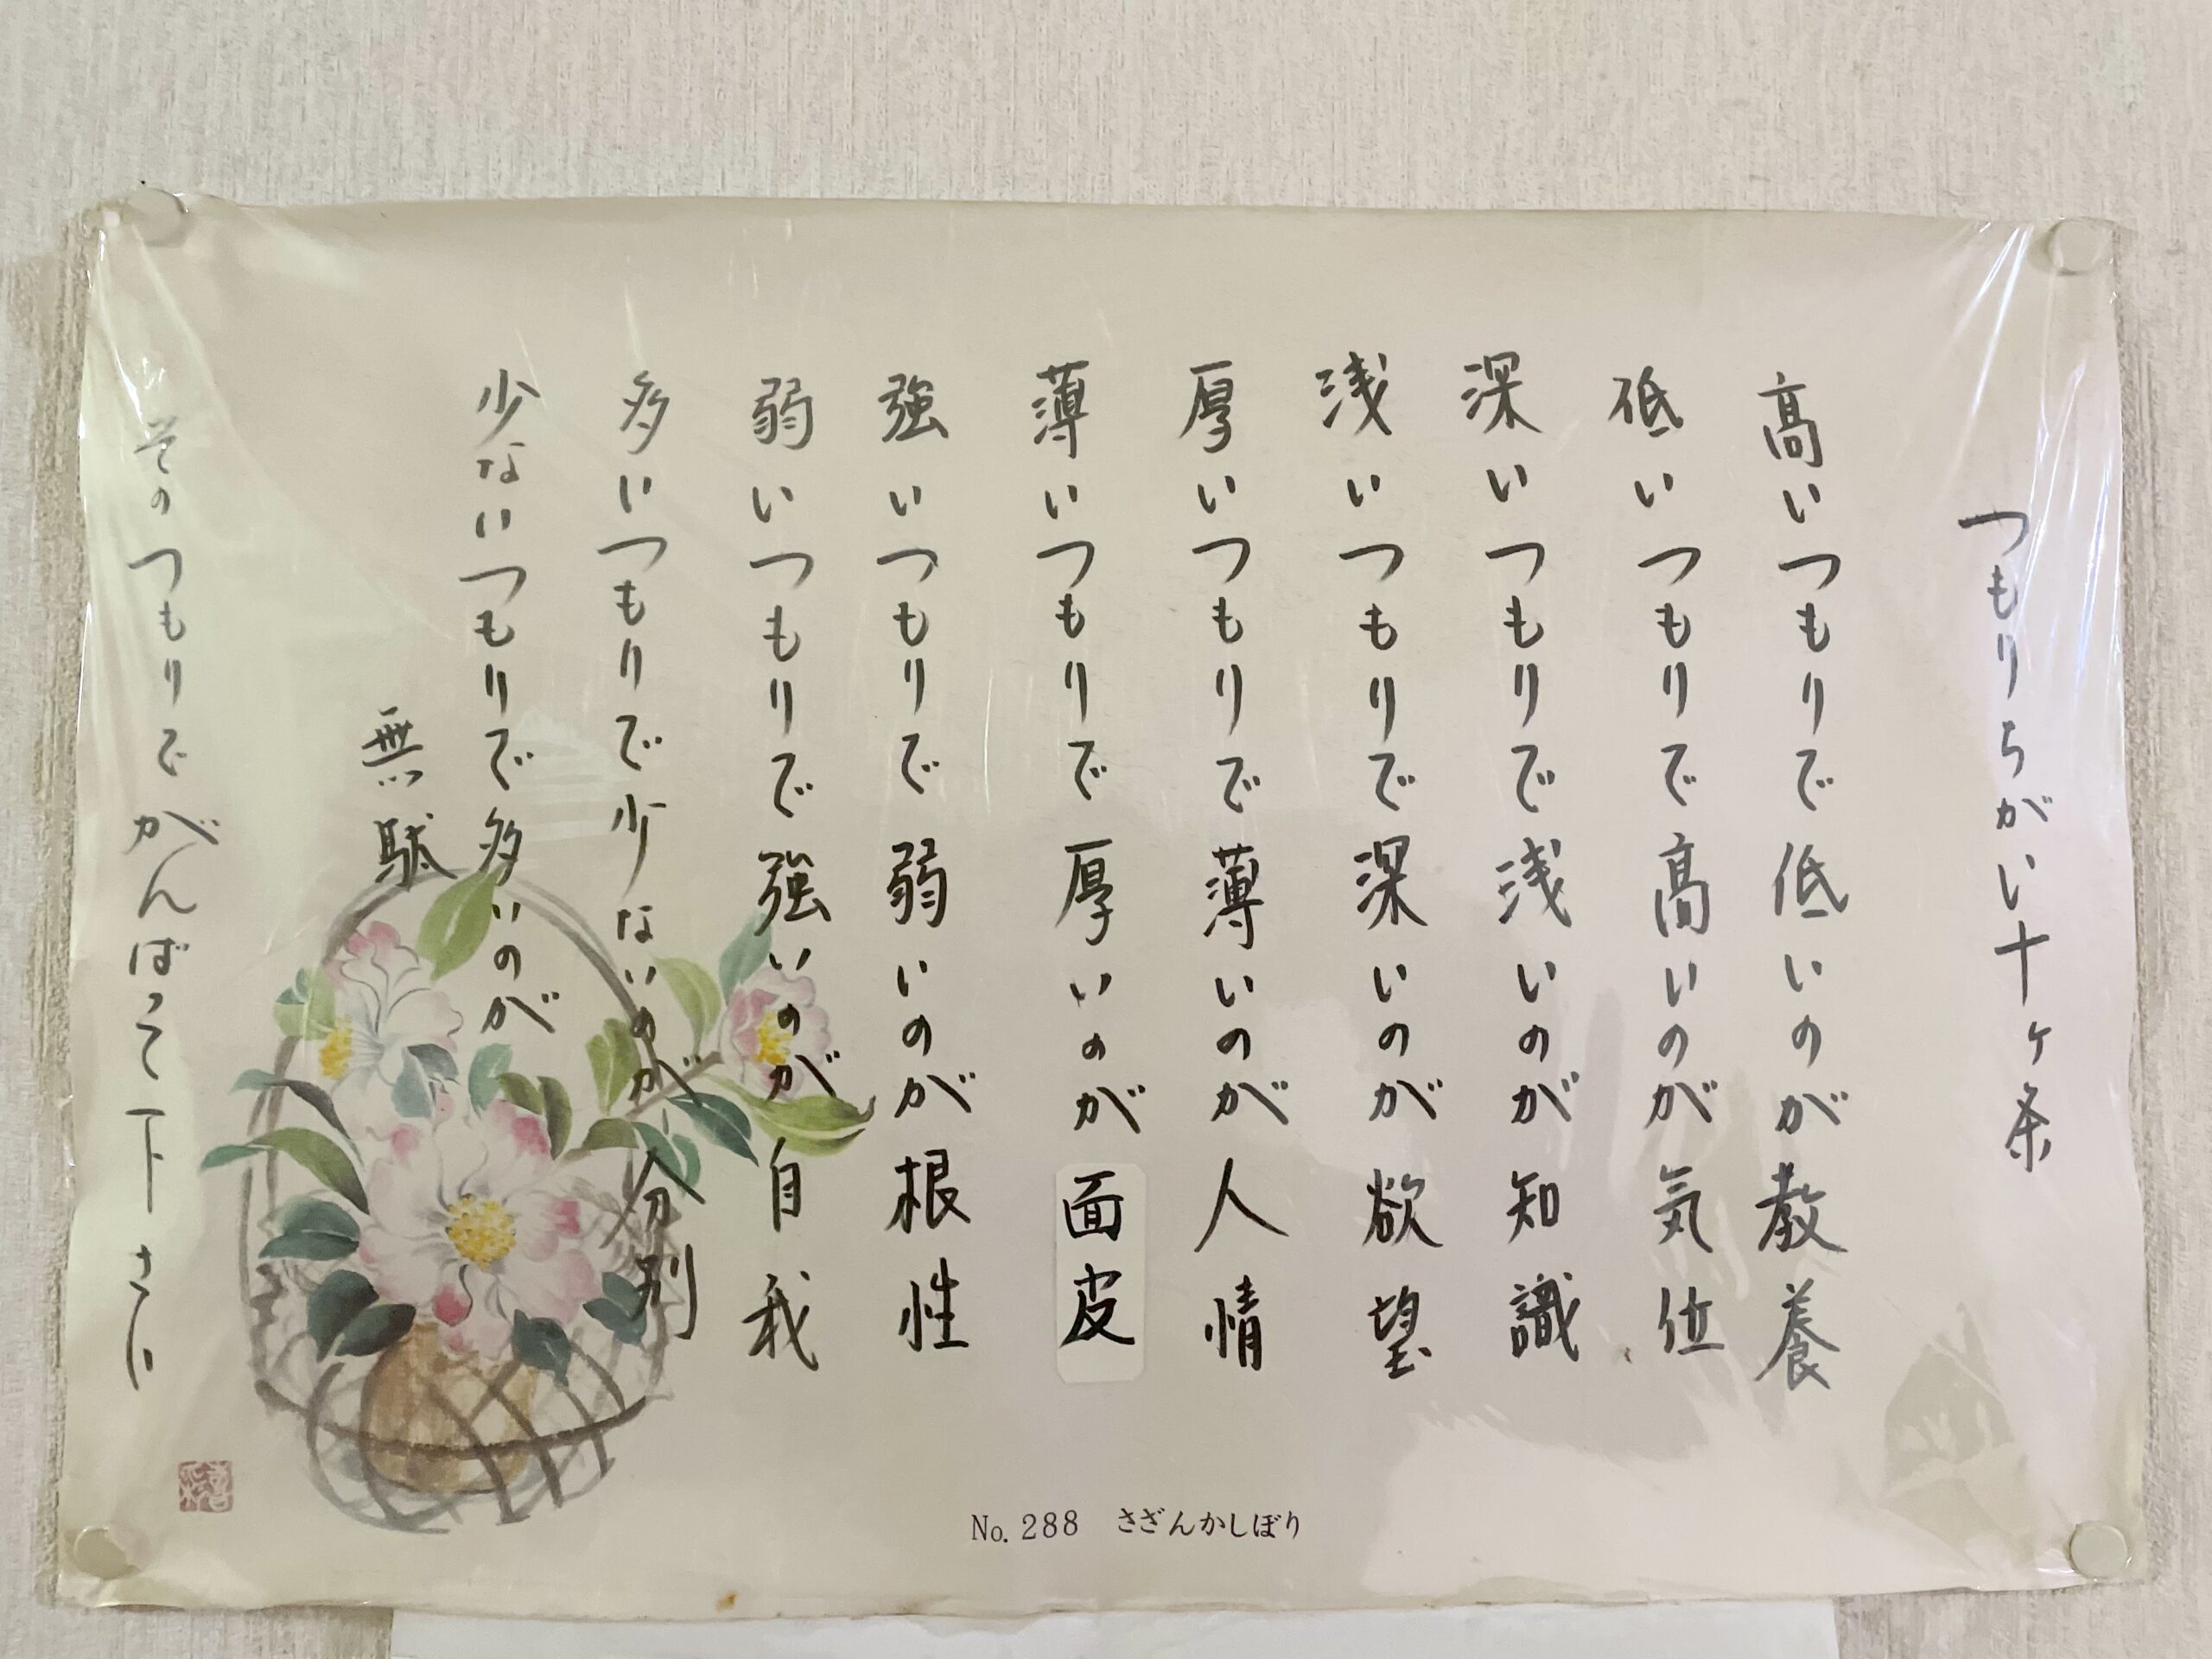 つもりちがい十ヶ条
高いつもりで低いのが教養
低いつもりで高いのが気位
深いつもりで浅いのが知識
浅いつもりで深いのが欲望
厚いつもりで薄いのが人情
薄いつもりで厚いのが面皮
強いつもりで弱いのが根性
弱いつもりで強いのが自我
多いつもりで少ないのが分別
少ないつもりで多いのが
無駄
そのつもりでがんばって下さい
No.288 さざんかしぼり